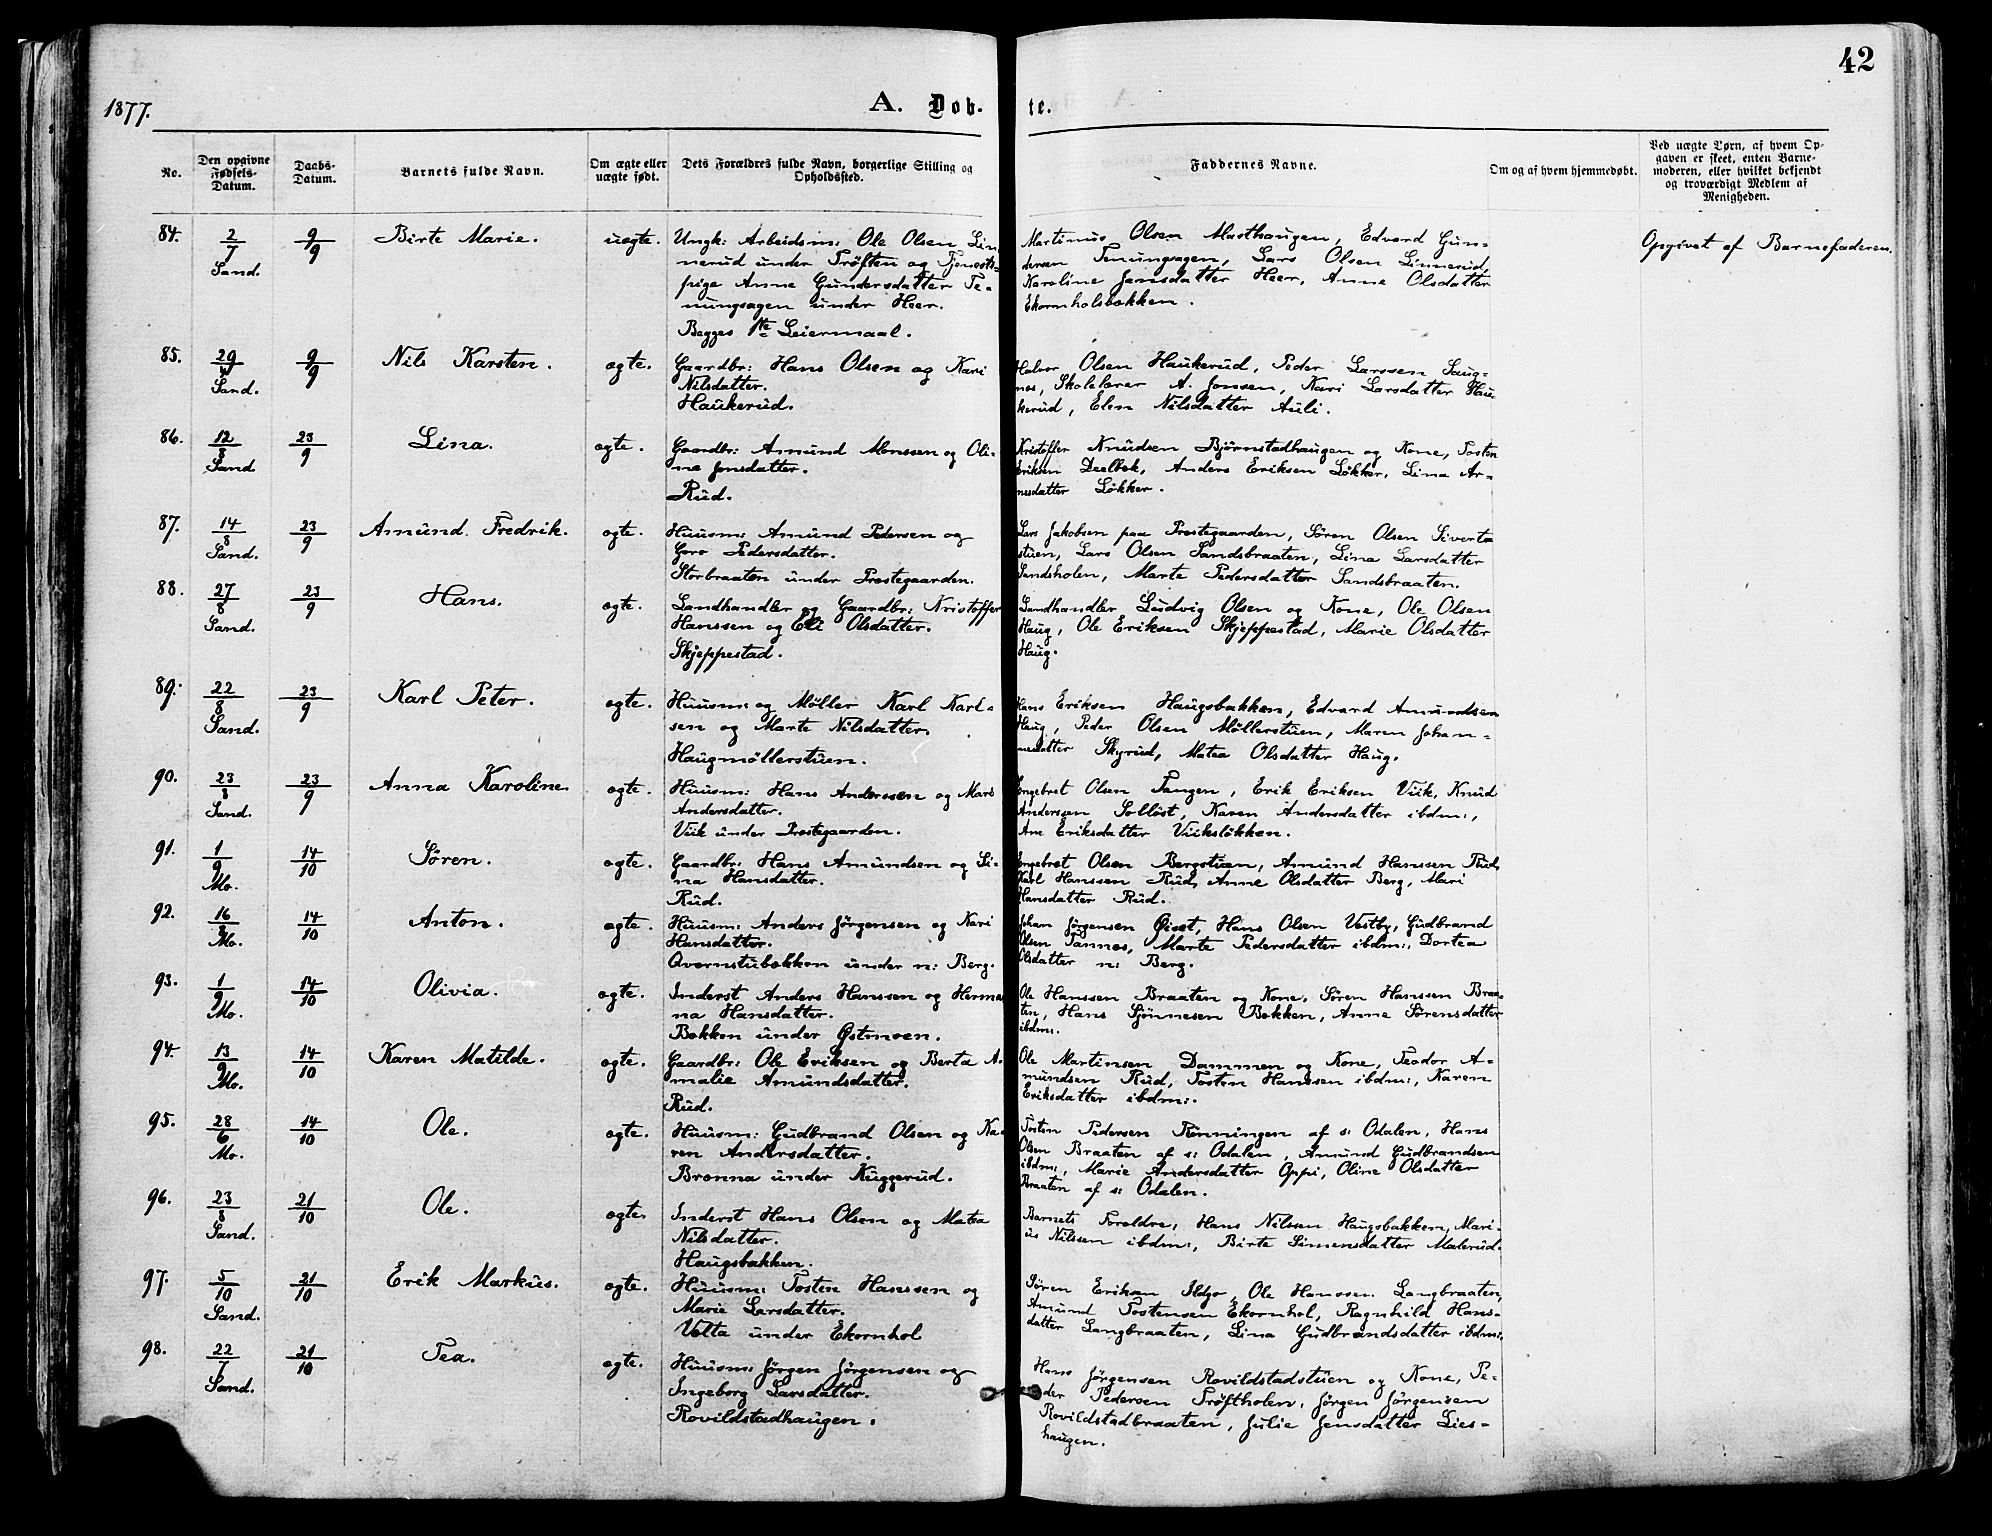 42
1877.
A. Døb-
te.
No.
Den opgivne Fødsels-Datum.
Daabs-Datum.
Barnets fulde Navn.
Om ægte eller uægte født.
Dets Forældres fulde Navn, borgerlige Stilling og Opholdssted.
Faddernes Navne.
Om og af hvem hjemmedøbt.
Ved uægte Børn, af hvem Opgaven er skeet, enten Barnemoderen, eller hvilket bekjendt og troværdigt Medlem af Menigheden.
84. 2/7 Sand. 9/9 Birte Marie. uægte.
Ungk: Arbeidsm: Ole Olsen Lin-
nerud under Trøften og Tjeneste-
pige Anne Gundersdatter Te-
nungsagen under Heer.
Begges 1ste Leiermaal.
Martinus Olsen Masthaugen, Edvard Gun-
dersen Tenungsagen, Lars Olsen Linnerud,
Karoline Jansdatter Heer, Anne Olsdatter
Ekornholsbakken.
Opgivet af Barnefaderen.
85. 29 Sand. 9/9 Nils Karsten. ægte.
Gaardbr: Hans Olsen og Kari
Nilsdatter.
Haukerud.
Halvor Olsen Haukerud, Peder Larssen Saug-
nes, Skolelærer A. Jonsen, Kari Larsdatter Hau-
kerud, Elen Nilsdatter Auli.
86. 12/8 Sand 23/9 Lina. ægte.
Gaardbr: Amund Monssen og Oli-
ne Jonsdatter.
Rud.
Kristoffer Knudsen Bjørnstadhaugen og Kone, Tosten
Eriksen Deelbek, Anders Eriksen Løkker, Lina Ar-
nesdatter Løkker.
87. 14/8 Sand. 23/9 Amund Fredrik. ægte.
Huusm: Amund Pedersen og
Goro Pedersdatter.
Storbraaten under Prestegaarden.
Lars Jakobsen paa Prestegaarden, Søren Olsen Siverts-
stuen, Lars Olsen Sandsbraaten, Lina Larsdatter
Sandsholen, Marte Pedersdatter Sandsbraaten.
88. 27/8 Sand. 23/9 Hans. ægte.
Landhandler og Gaardbr: Kristoffer
Hanssen og Eli Olsdatter.
Skjeppestad.
Landhandler Ludvig Olsen og Kone, Ole Olsen
Haug, Ole Eriksen Skjeppestad, Marie Olsdatter
Haug.
89. 22/8 Sand. 23/9 Karl Peter. ægte.
Huusm: og Møller Karl Karl-
sen og Marte Nilsdatter.
Haugmøllerstuen.
Hans Eriksen Haugsbakken, Edvard Amundsen
Haug, Peder Olsen Møllerstuen, Maren Johan-
nesdatter Skyrud, Matea Olsdatter Haug.
90. 23/8 Sand. 23/9 Anna Karoline. ægte.
Huusm: Hans Anderssen og Mari
Andersdatter.
Viik under Prestegaarden.
Engebret Olsen Tangen, Erik Eriksen Viik, Knud
Anderssen Solløst, Karen Andersdatter ibdm:,
Ane Eriksdatter Viiksløkken.
91. 1/9 Mo. 14/10 Søren. ægte.
Gaardbr: Hans Amundsen og Li-
na Hansdatter.
Rud.
Engebret Olsen Bergstuen, Amund Hanssen Rud,
Karl Hanssen Rud, Anne Olsdatter Berg, Mari
Hansdatter Rud.
92. 16/8 Mo. 14/10 Anton. ægte.
Huusm: Anders Jørgensen og Kari
Hansdatter.
Qvernstubekken under n: Berg.
Johan Jørgensen Øiset, Hans Olsen Vestby, Gudbrand
Olsen Tannes, Marte Pedersdatter ibdm:, Dortea
Olsdatter n: Berg.
93. 1/9 Mo. 14/10 Olivia. ægte.
Inderst Anders Hanssen og Herma-
na Hansdatter.
Bekken under Østmoen.
Ole Hanssen Braaten og Kone, Søren Hanssen Braa-
ten, Hans Sjønnesen Bekken, Anne Sørensdatter
ibdm:.
94. 13/9 Mo. 14/10 Karen Matilde. ægte.
Gaardbr: Ole Eriksen og Berta A-
malie Amundsdatter.
Rud.
Ole Martinsen Dammen og Kone, Teodor A-
mundsen Rud, Tosten Hanssen ibdm:, Karen
Eriksdatter ibdm:.
95. 28/6 Mo. 14/10 Ole. ægte.
Huusm: Gudbrand Olsen og Ka-
ren Andersdatter.
Brenna under Kuggerud.
Tosten Pedersen Rønningen af s: Odalen, Hans
Olsen Braaten af s: Odalen, Amund Gudbrandsen
ibdm:, Marie Andersdatter Oppi, Oline Olsdatter
Braaten af s: Odalen.
96. 23/8 Sand. 21/10 Ole. ægte.
Inderst Hans Olsen og Matea
Nilsdatter.
Haugsbakken.
Barnets Forældre, Hans Nilssen Haugsbakken, Mari-
us Nilssen ibdm:, Birte Simensdatter Malerud.
97. 5/10 Sand. 21/10 Erik Markus. ægte.
Huusm: Tosten Hanssen og
Marie Larsdatter.
Velta under Ekornhol
Søren Eriksen Ildjo, Ole Hanssen Langbraaten,
Amund Tostensen Ekornhol, Ragnhild Hans-
datter Langbraaten, Lina Gudbrandsdatter ibdm:.
98. 22/7 Sand. 21/10 Tea. ægte.
Huusm: Jørgen Jørgensen og
Ingeborg Larsdatter.
Rovildstadhaugen.
Hans Jørgensen Rovildstadstuen og Kone, Pe-
der Pedersen Trøftholen, Jørgen Jørgensen
Rovildstadbraaten, Julie Jensdatter Lies-
haugen.